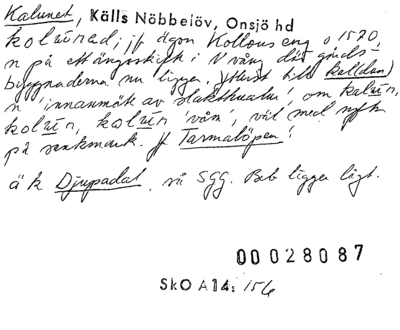 Kalunet, Källs Nöbbelöv, Onsjö hd
kolūnad; jf ägon. Kollous eng o 1570,
n på ett ängsskifte i N vång där gårds-
byggnaderna nu ligger. ytterst till kall(dan)
n 'innanmäte av slakthudar' om kalūn,
kolūn, kolūn 'våm', väl med syfte
på sankmark. Jf Tarmalöpen!
ä k Djupadal, så Sgg. Beb ligger lågt.
00028087
SkO A14: 156